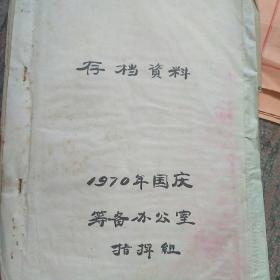 存档资料
1970年国庆
筹备办公室
指挥组